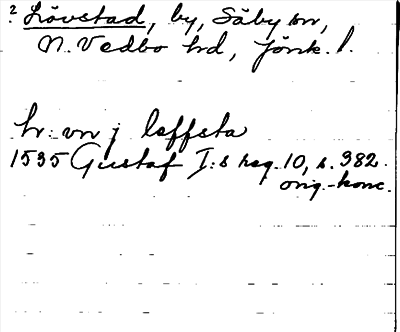 ? Lövstad, by, Säby sn,
N. Vedbo hd, Jönk. l.
hr: vn j loffsta
1535 Gustaf I:s reg. 10, s. 382.
orig.-konc.